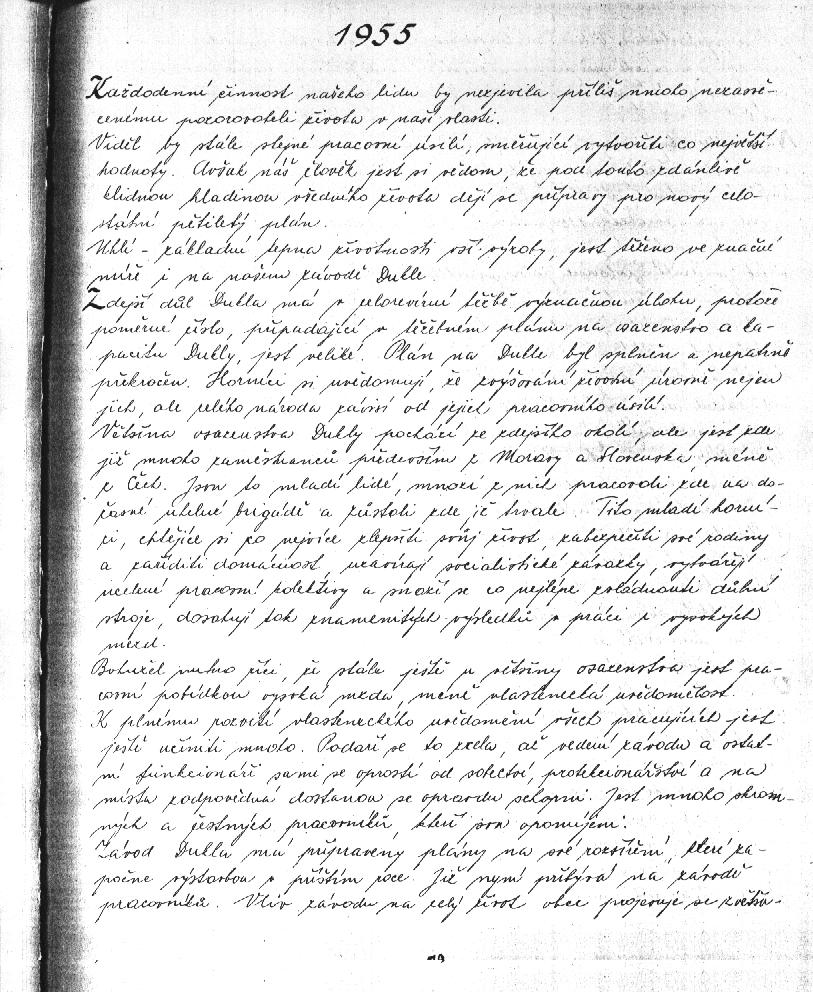 1955
Každodenní činnost našeho lidu by nezjevila příliš mnoho nezasvě-
cenému pozorovateli života v naší vlasti.
Viděl by stále stejné pracovní úsilí, směřující vytvořiti co největší
hodnoty. Avšak náš člověk jest si vědom, že pod touto zdánlivě
klidnou hladinou všedního života dějí se přípravy pro nový celo-
státní pětiletý plán.
Uhlí - základní tepna životnosti vší výroby, jest těženo ve značné
míře i na našem závodě Dukle.
Zdejší důl Dukla má v celorevírní těžbě význačnou úlohu, protože
poměrné číslo, připadající v těžebném plánu na osazenstvo a ka-
pacitu Dukly, jest veliké. Plán na Dukle byl splněn a nepatrně
překročen. Horníci si uvědomují, že zvyšování životní úrovně nejen
jich, ale celého národa závisí od jejich pracovního úsilí.
Většina osazenstva Dukly pochází ze zdejšího okolí, ale jest zde
již mnoho zaměstnanců především z Moravy a Slovenska, méně
z Čech. Jsou to mladí lidé, mnozí z nich pracovali zde na do-
časné uhelné brigádě a zůstali zde již trvale. Tito mladí horní-
ci, chtějíce si co nejvíce zlepšiti svůj život, zabezpečiti své rodiny
a zaříditi domácnost, uzavírají socialistické závazky, vytvářejí
ucelené pracovní kolektivy a snaží se co nejlépe zvládnouti důlní
stroje, dosahují tak znamenitých výsledků v práci i vysokých
mezd.
Bohužel nutno říci, že stále ještě u většiny osazenstva jest pra-
covní pobídkou vysoká mzda, méně vlastenecká uvědomělost.
K plnému rozvití vlasteneckého uvědomění všech pracujících jest
ještě učiniti mnoho. Podaří se to zcela, až vedení závodu a ostat-
ní funkcionáři sami se oprostí od sobectví, protekcionářství a na
místa zodpovědná dostanou se opravdu schopní. Jest mnoho skrom-
ných a čestných pracovníků, kteří jsou opomíjeni.
Závod Dukla má připraveny plány na své rozšíření, které za-
počne výstavbou v příštím roce. Již nyní přibývá na závodě
pracovníků. Vliv závodu na celý život obce projevuje se zvětšo-